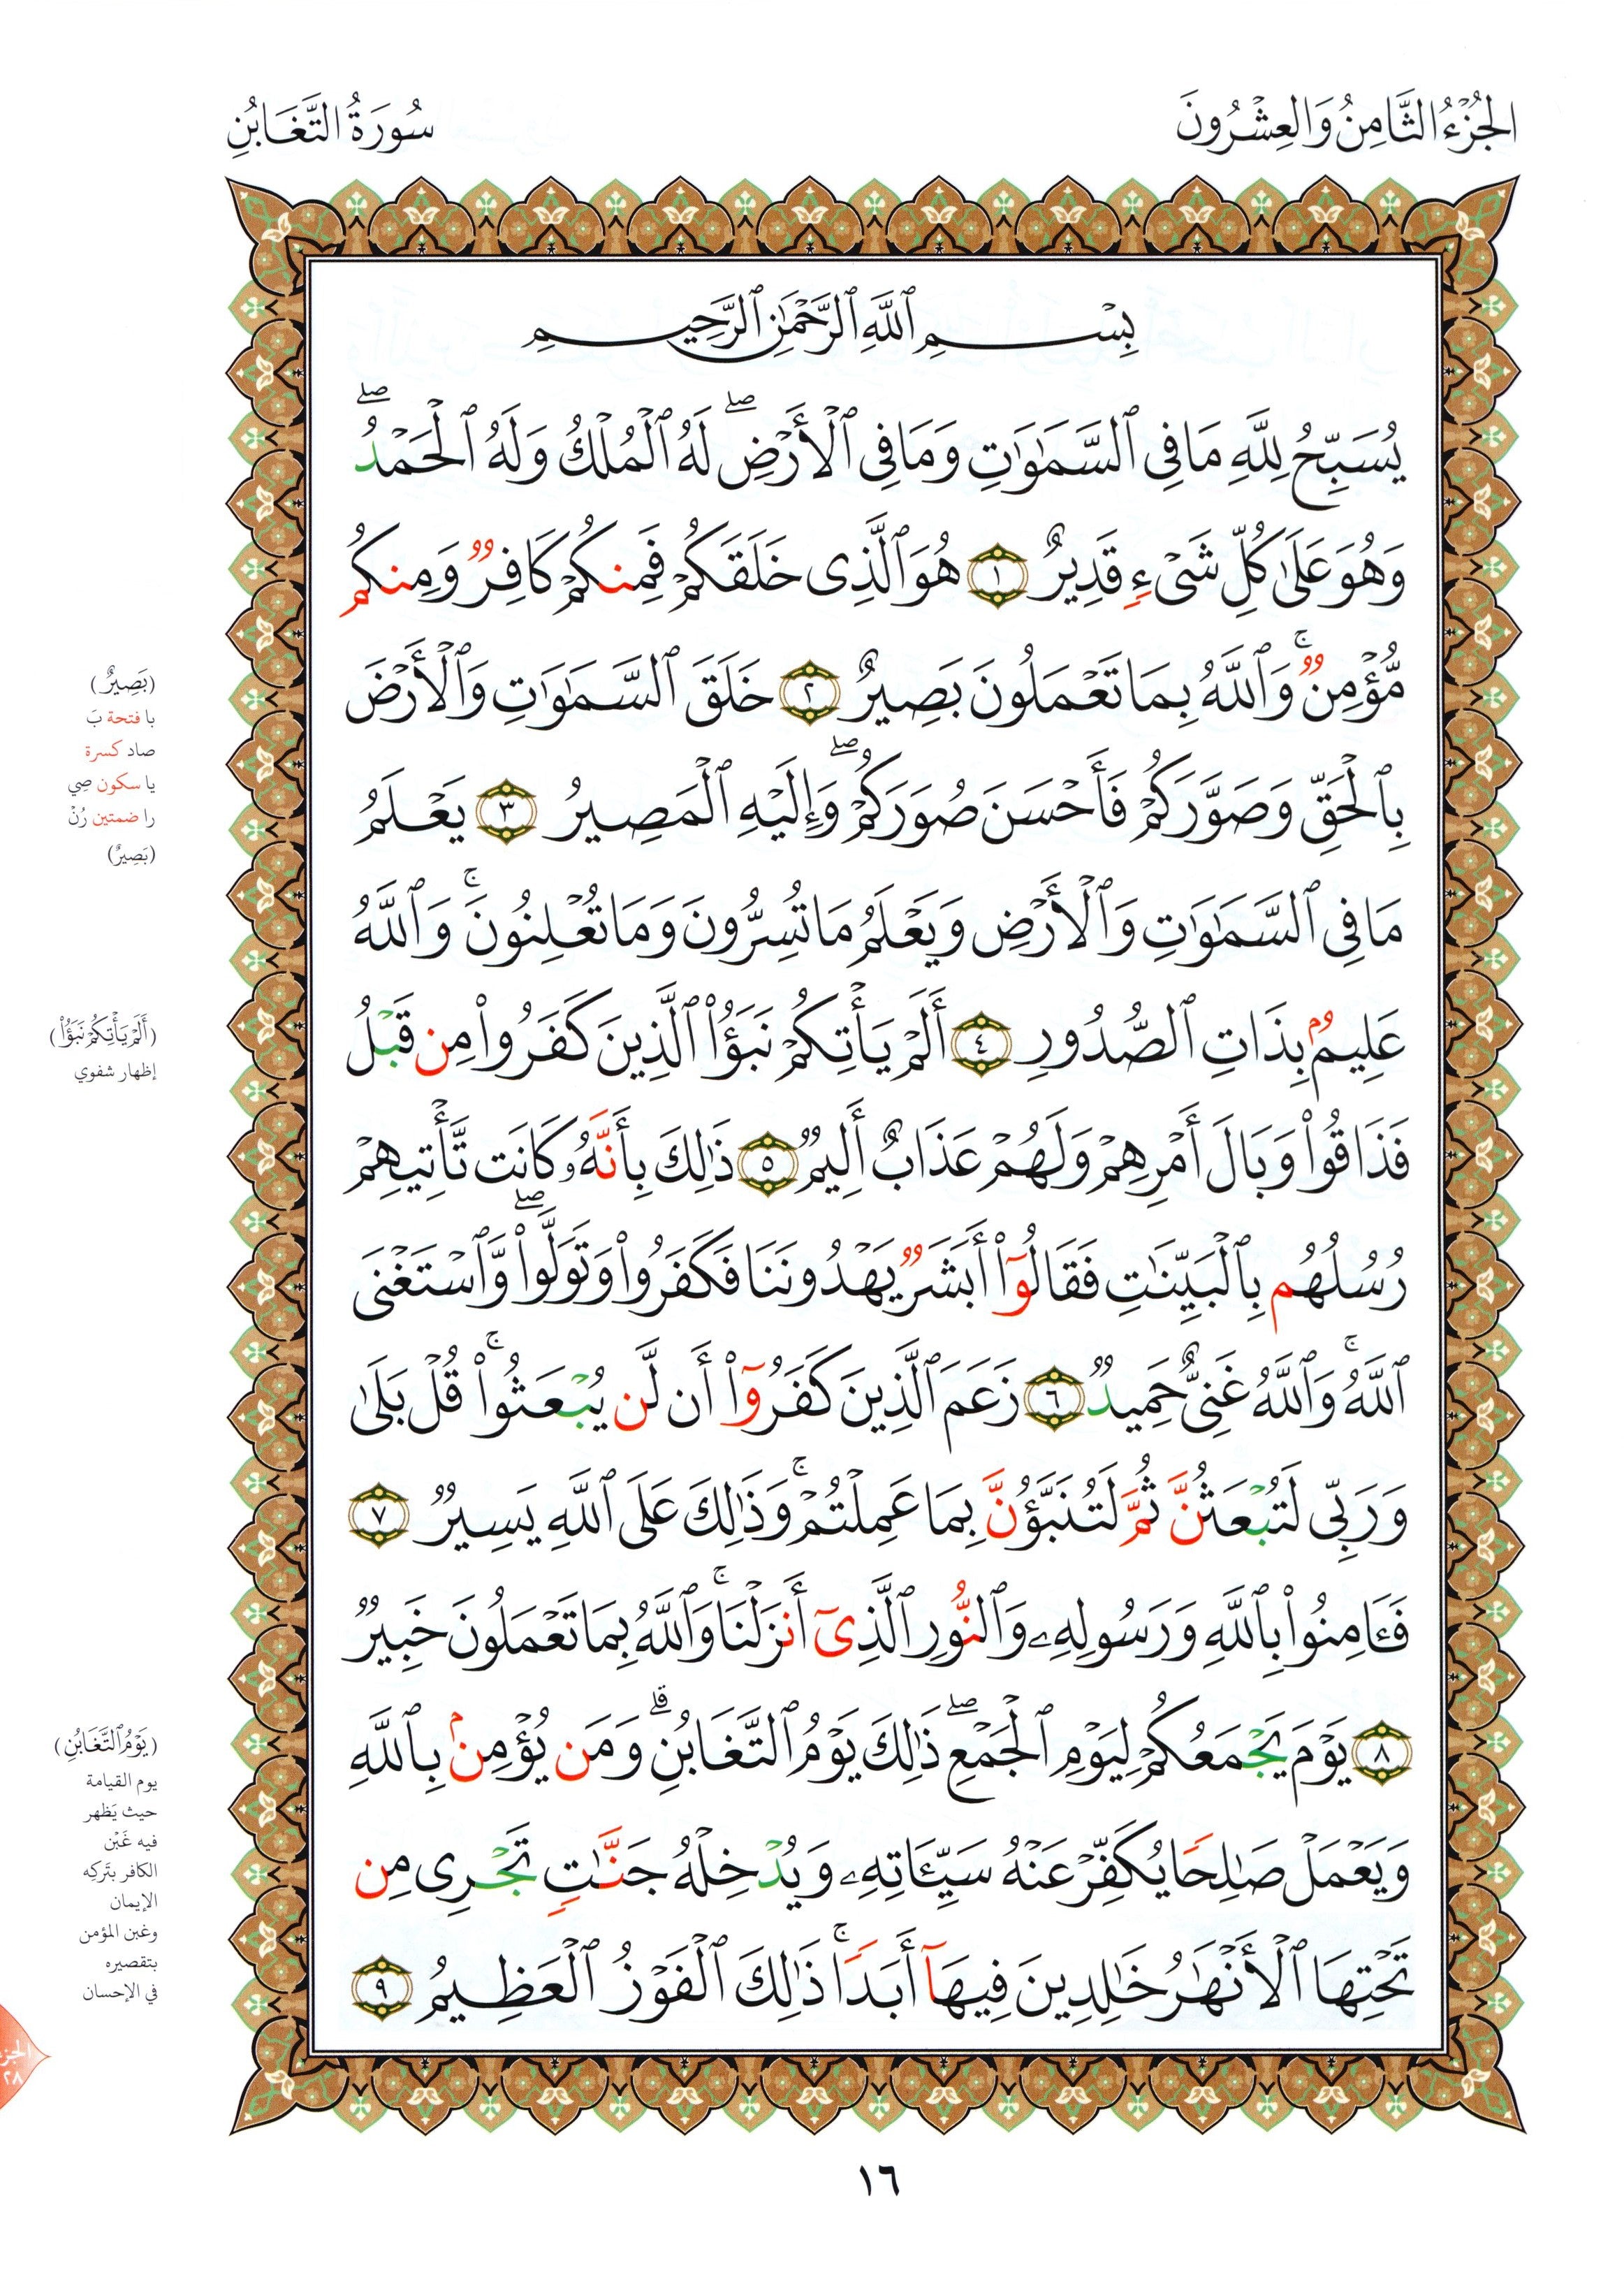 الجُزْءُ الثَّامِنُ وَالعِشْرُونَ
سُورَةُ التَّغَابُنِ
بِسْمِ ٱللَّهِ ٱلرَّحْمَٰنِ ٱلرَّحِيمِ
يُسَبِّحُ لِلَّهِ مَا فِى ٱلسَّمَٰوَٰتِ وَمَا فِى ٱلْأَرْضِ ۖ لَهُ ٱلْمُلْكُ وَلَهُ ٱلْحَمْدُ ۖ
وَهُوَ عَلَىٰ كُلِّ شَىْءٍ قَدِيرٌ ١ هُوَ ٱلَّذِى خَلَقَكُمْ فَمِنكُمْ كَافِرٌ وَمِنكُم
مُّؤْمِنٌ ۚ وَٱللَّهُ بِمَا تَعْمَلُونَ بَصِيرٌ ٢ خَلَقَ ٱلسَّمَٰوَٰتِ وَٱلْأَرْضَ
بِٱلْحَقِّ وَصَوَّرَكُمْ فَأَحْسَنَ صُوَرَكُمْ ۖ وَإِلَيْهِ ٱلْمَصِيرُ ٣ يَعْلَمُ
مَا فِى ٱلسَّمَٰوَٰتِ وَٱلْأَرْضِ وَيَعْلَمُ مَا تُسِرُّونَ وَمَا تُعْلِنُونَ ۚ وَٱللَّهُ
عَلِيمٌۢ بِذَاتِ ٱلصُّدُورِ ٤ أَلَمْ يَأْتِكُمْ نَبَؤُا۟ ٱلَّذِينَ كَفَرُوا۟ مِن قَبْلُ
فَذَاقُوا۟ وَبَالَ أَمْرِهِمْ وَلَهُمْ عَذَابٌ أَلِيمٌ ٥ ذَٰلِكَ بِأَنَّهُۥ كَانَت تَّأْتِيهِمْ
رُسُلُهُم بِٱلْبَيِّنَٰتِ فَقَالُوٓا۟ أَبَشَرٌ يَهْدُونَنَا فَكَفَرُوا۟ وَتَوَلَّوا۟ ۖ وَّٱسْتَغْنَى
ٱللَّهُ ۚ وَٱللَّهُ غَنِىٌّ حَمِيدٌ ٦ زَعَمَ ٱلَّذِينَ كَفَرُوٓا۟ أَن لَّن يُبْعَثُوا۟ ۚ قُلْ بَلَىٰ
وَرَبِّى لَتُبْعَثُنَّ ثُمَّ لَتُنَبَّؤُنَّ بِمَا عَمِلْتُمْ ۚ وَذَٰلِكَ عَلَى ٱللَّهِ يَسِيرٌ ٧
فَـَٔامِنُوا۟ بِٱللَّهِ وَرَسُولِهِۦ وَٱلنُّورِ ٱلَّذِىٓ أَنزَلْنَا ۚ وَٱللَّهُ بِمَا تَعْمَلُونَ خَبِيرٌ
٨ يَوْمَ يَجْمَعُكُمْ لِيَوْمِ ٱلْجَمْعِ ۖ ذَٰلِكَ يَوْمُ ٱلتَّغَابُنِ ۗ وَمَن يُؤْمِنۢ بِٱللَّهِ
وَيَعْمَلْ صَٰلِحًا يُكَفِّرْ عَنْهُ سَيِّـَٔاتِهِۦ وَيُدْخِلْهُ جَنَّٰتٍ تَجْرِى مِن
تَحْتِهَا ٱلْأَنْهَٰرُ خَٰلِدِينَ فِيهَآ أَبَدًا ۚ ذَٰلِكَ ٱلْفَوْزُ ٱلْعَظِيمُ ٩
(بَصِيرٌ)
با فتحة بَ
صاد كسرة
يا سكون صِي
را ضمتين رُنْ
(بَصِيرٌ)
(أَلَمْ يَأْتِكُمْ نَبَؤُا۟)
إظهار شفوي
(يَوْمُ ٱلتَّغَابُنِ)
يوم القيامة
حيث يَظهر
فيه غَبْن
الكافر بتَركِه
الإيمان
وغبن المؤمن
بتقصيره
في الإحسان
الجزء
٢٨
١٦